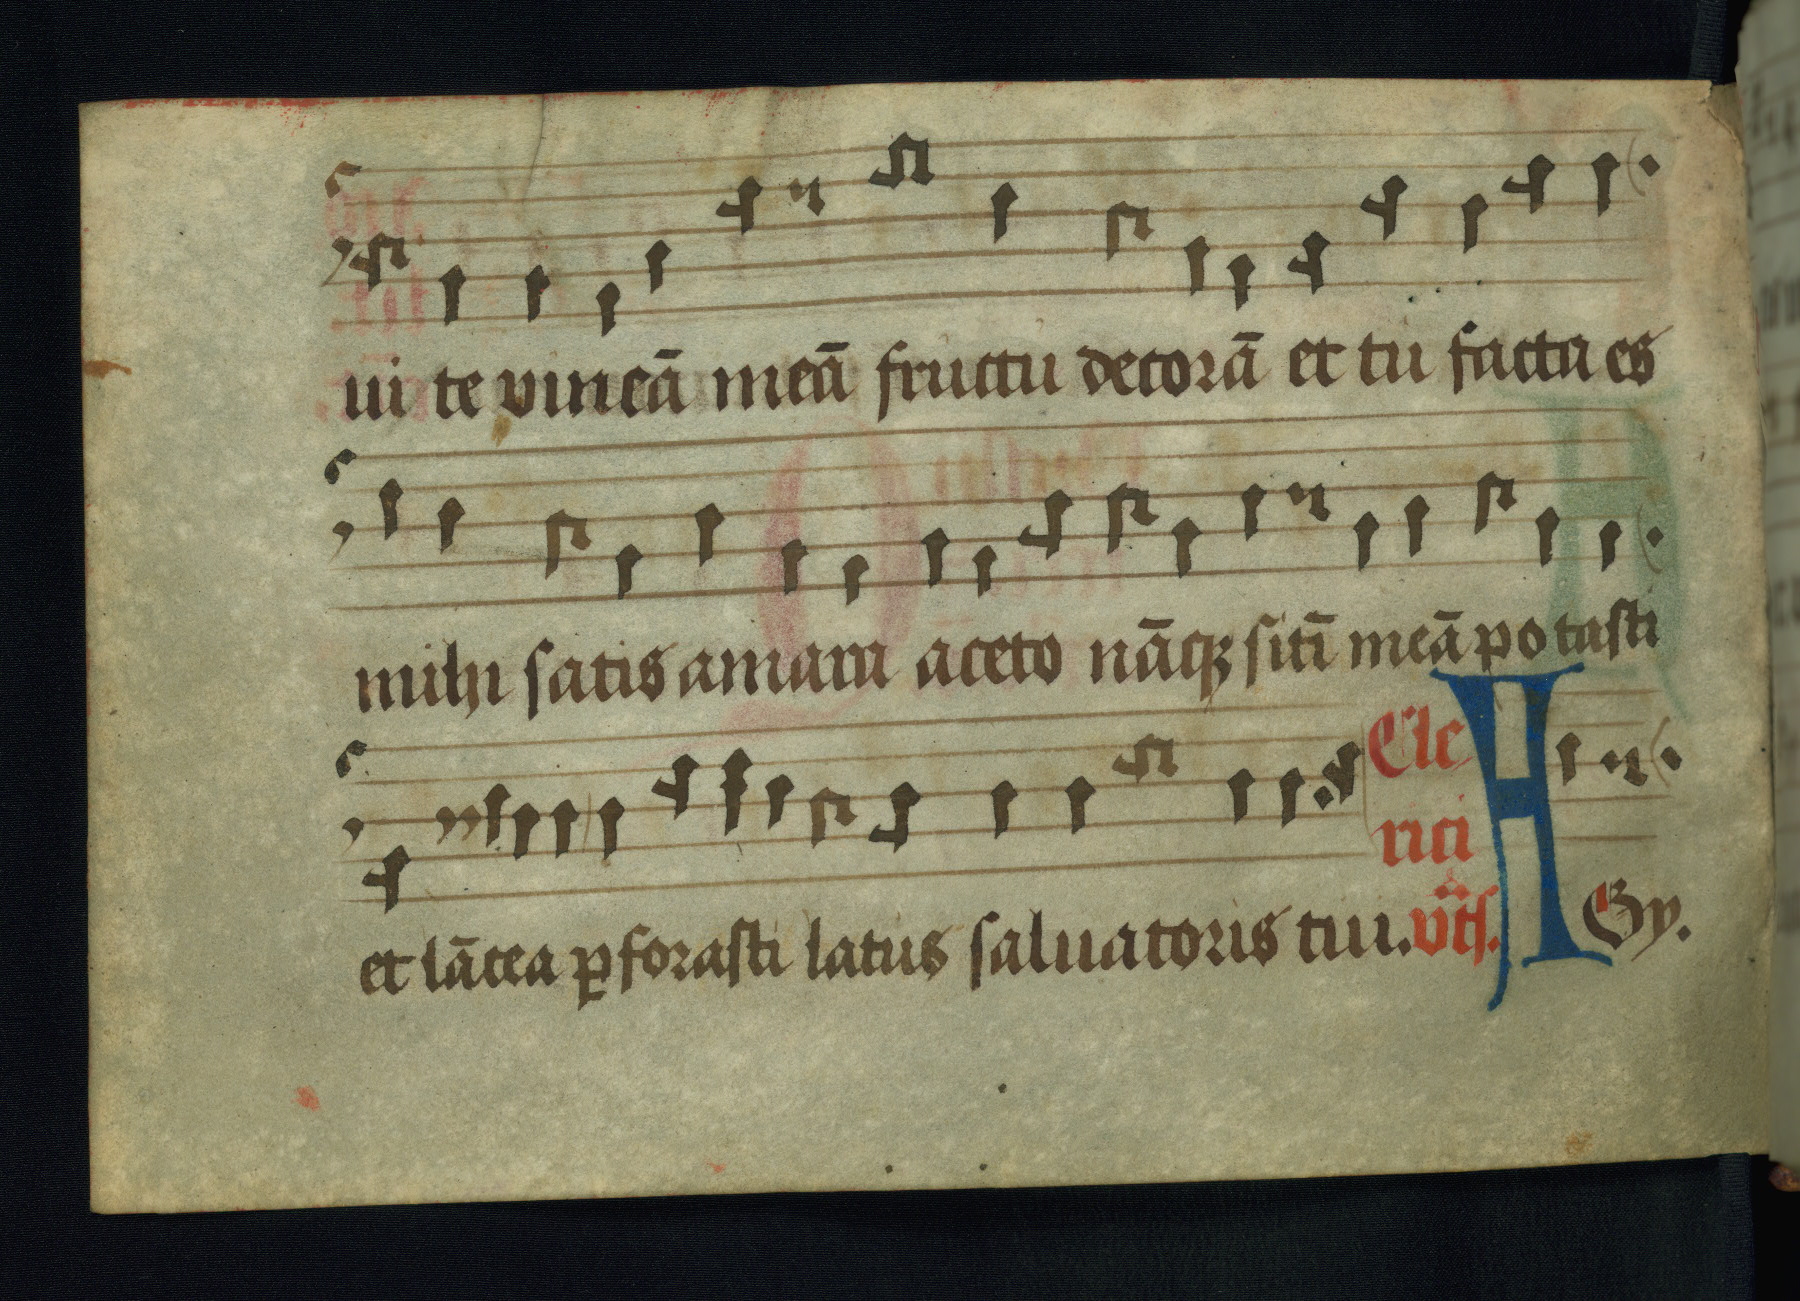 ui te vineā meā fructu decorā et tu facta es
mihi satis amara aceto nāqꝫ sitī meā potasti
et lācea ꝑforasti latus saluatoris tui. Cle
rici
vͤs̄.
AGy.